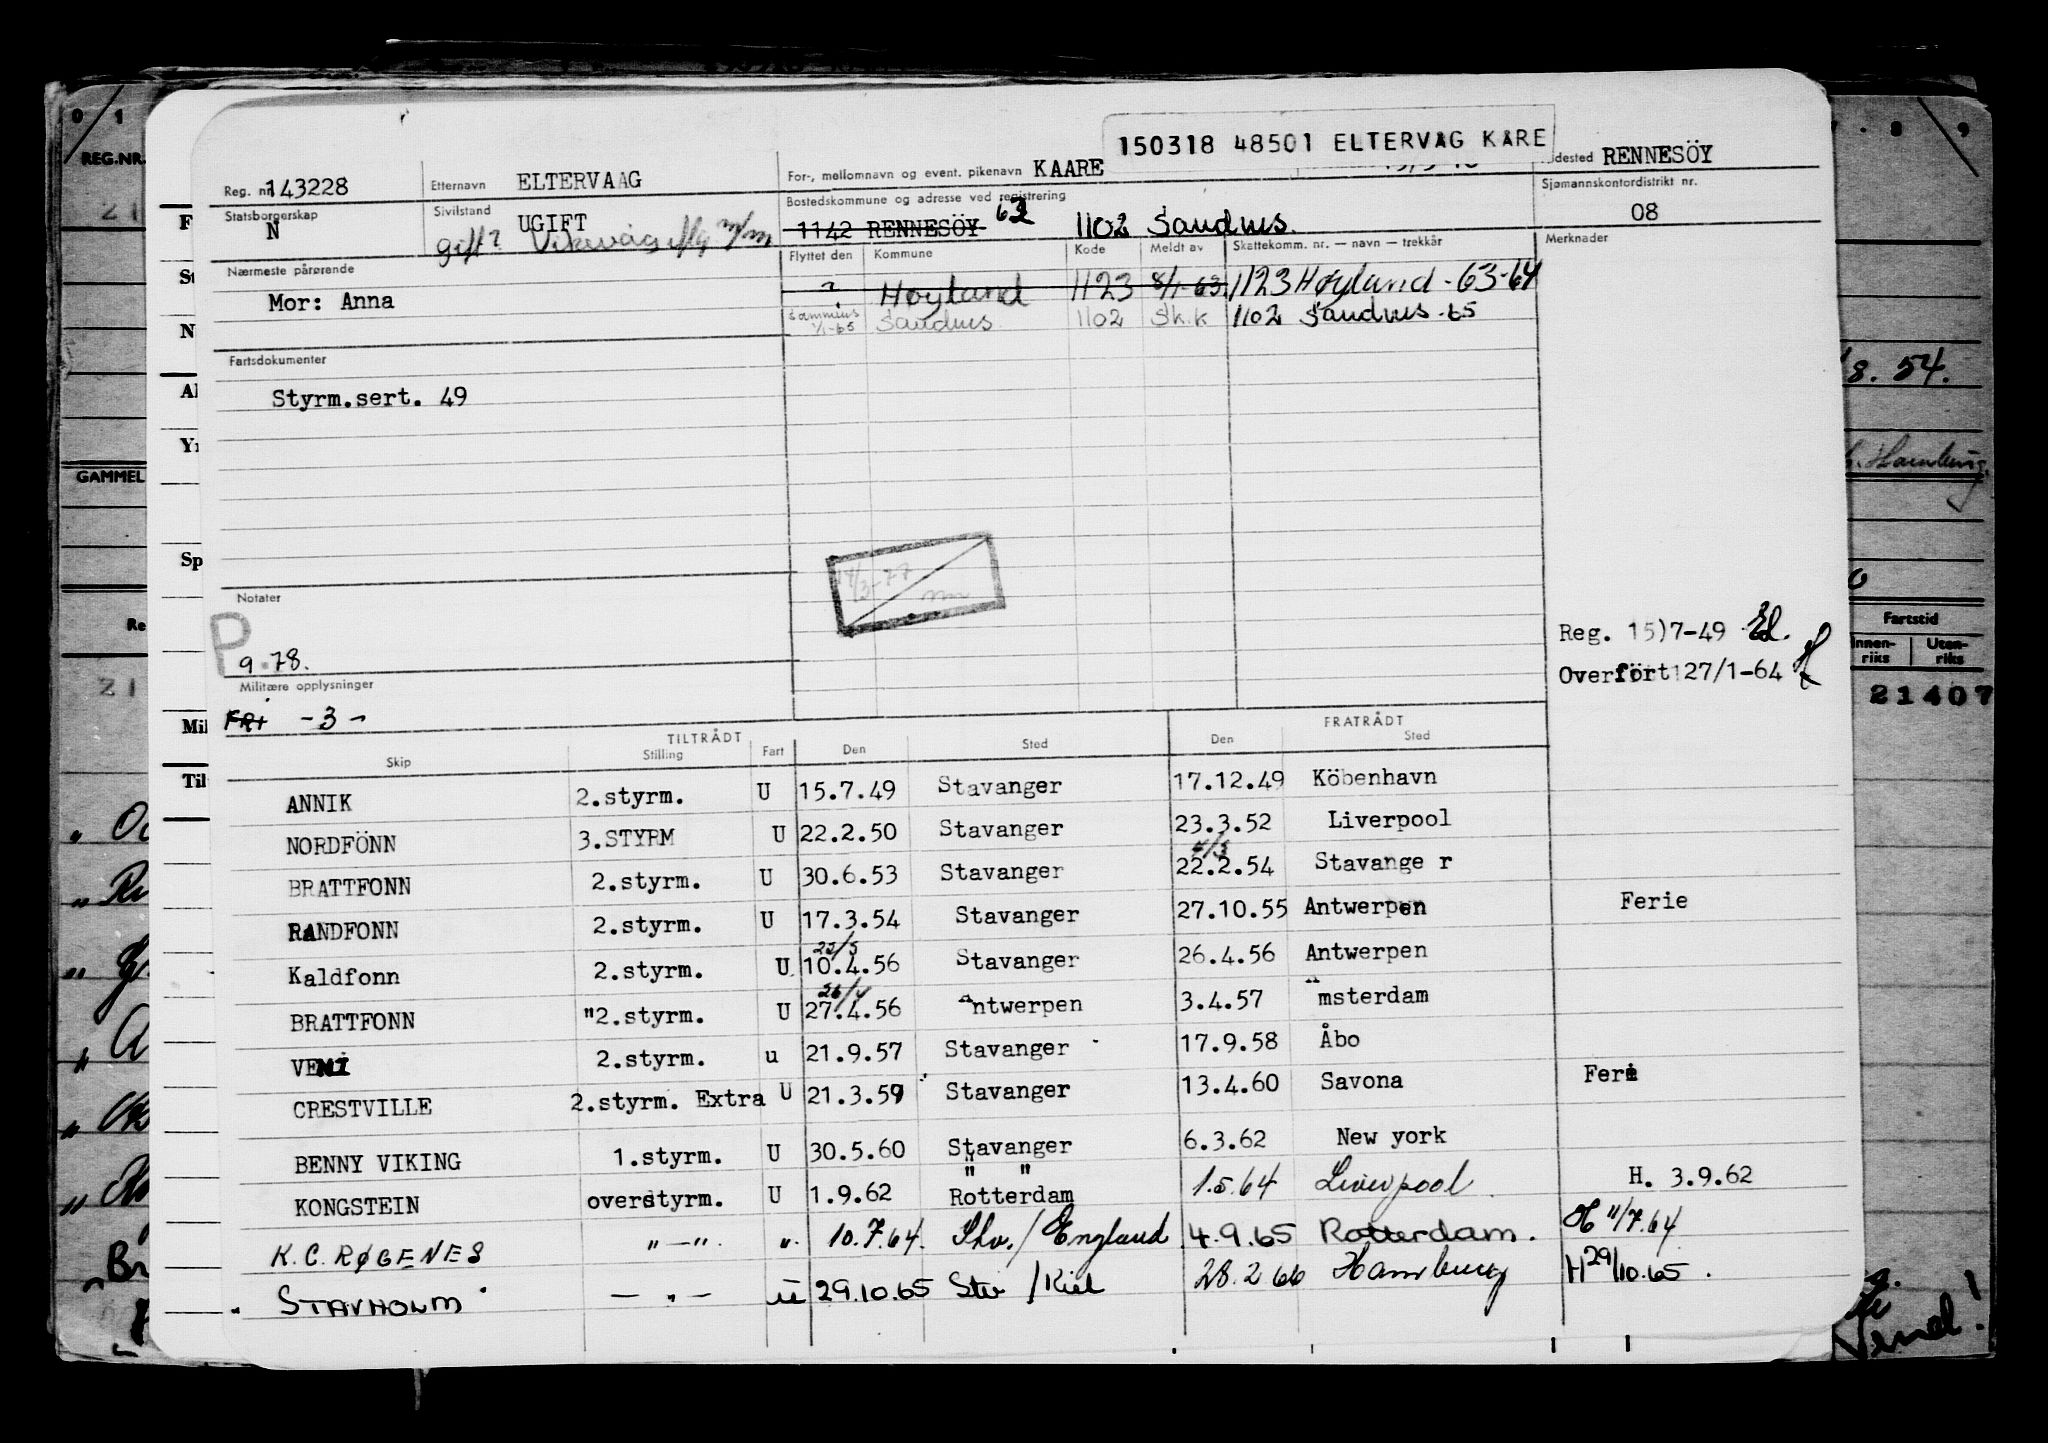 150318 48501 ELTERVAG KARE
Reg. nr. 143228 Etternavn ELTERVAAG For-, mellomnavn og event. pikenavn KAARE Fødested RENNESÖY
Statsborgerskap N Sivilstand UGIFT Bostedskommune og adresse ved registrering Sjømannskontordistrikt nr. 08
gift? Vikevåg 1142 RENNESÖY 63 1102 Sandnes.
Nærmeste pårørende Flyttet den Kommune Kode Meldt av Skattekomm. nr. — navn — trekkår Merknader
Mor: Anna ? Høyland 1123 8/1-63 1123 Høyland - 63-64
1/1-65 Sandnes 1102 Sk.k 1102 Sandnes - 65
Fartsdokumenter
Styrm.sert. 49
14/3-77
Notater
P 9.78.
Reg. 15)7-49
Overfört 27/1-64
Militære opplysninger
FRI -3-
TILTRÅDT FRATRÅDT
Skip Stilling Fart Den Sted Den Sted
ANNIK 2.styrm. U 15.7.49 Stavanger 17.12.49 Köbenhavn
NORDFÖNN 3.STYRM U 22.2.50 Stavanger 23.3.52 Liverpool
4/3
BRATTFONN 2.styrm. U 30.6.53 Stavanger 22.2.54 Stavange r
RANDFONN 2.styrm. U 17.3.54 Stavanger 27.10.55 Antwerpen Ferie
Kaldfonn 2.styrm. U 10.4.56 Stavanger 26.4.56 Antwerpen
26/4
BRATTFONN "2.styrm. U 27.4.56 Antwerpen 3.4.57 Amsterdam
VENI 2.styrm. u 21.9.57 Stavanger 17.9.58 Åbo
CRESTVILLE 2.styrm. Extra U 21.3.59 Stavanger 13.4.60 Savona Ferie
BENNY VIKING 1.styrm. U 30.5.60 Stavanger 6.3.62 New york
" "
KONGSTEIN overstyrm. U 1.9.62 Rotterdam 1.5.64 Liverpool H. 3.9.62
K.C. RØGENES " — " " 10.7.64. Shv./England 4.9.65 Rotterdam. H 11/7.64
STAVHOLM — " — U 29.10.65 Stv /Kiel 28.2.66 Hamburg H 29/10.65.
REG.NR.
GAMMEL
8. 54.
Hamburg.
Fartstid
Innen-riks Uten-riks
21407